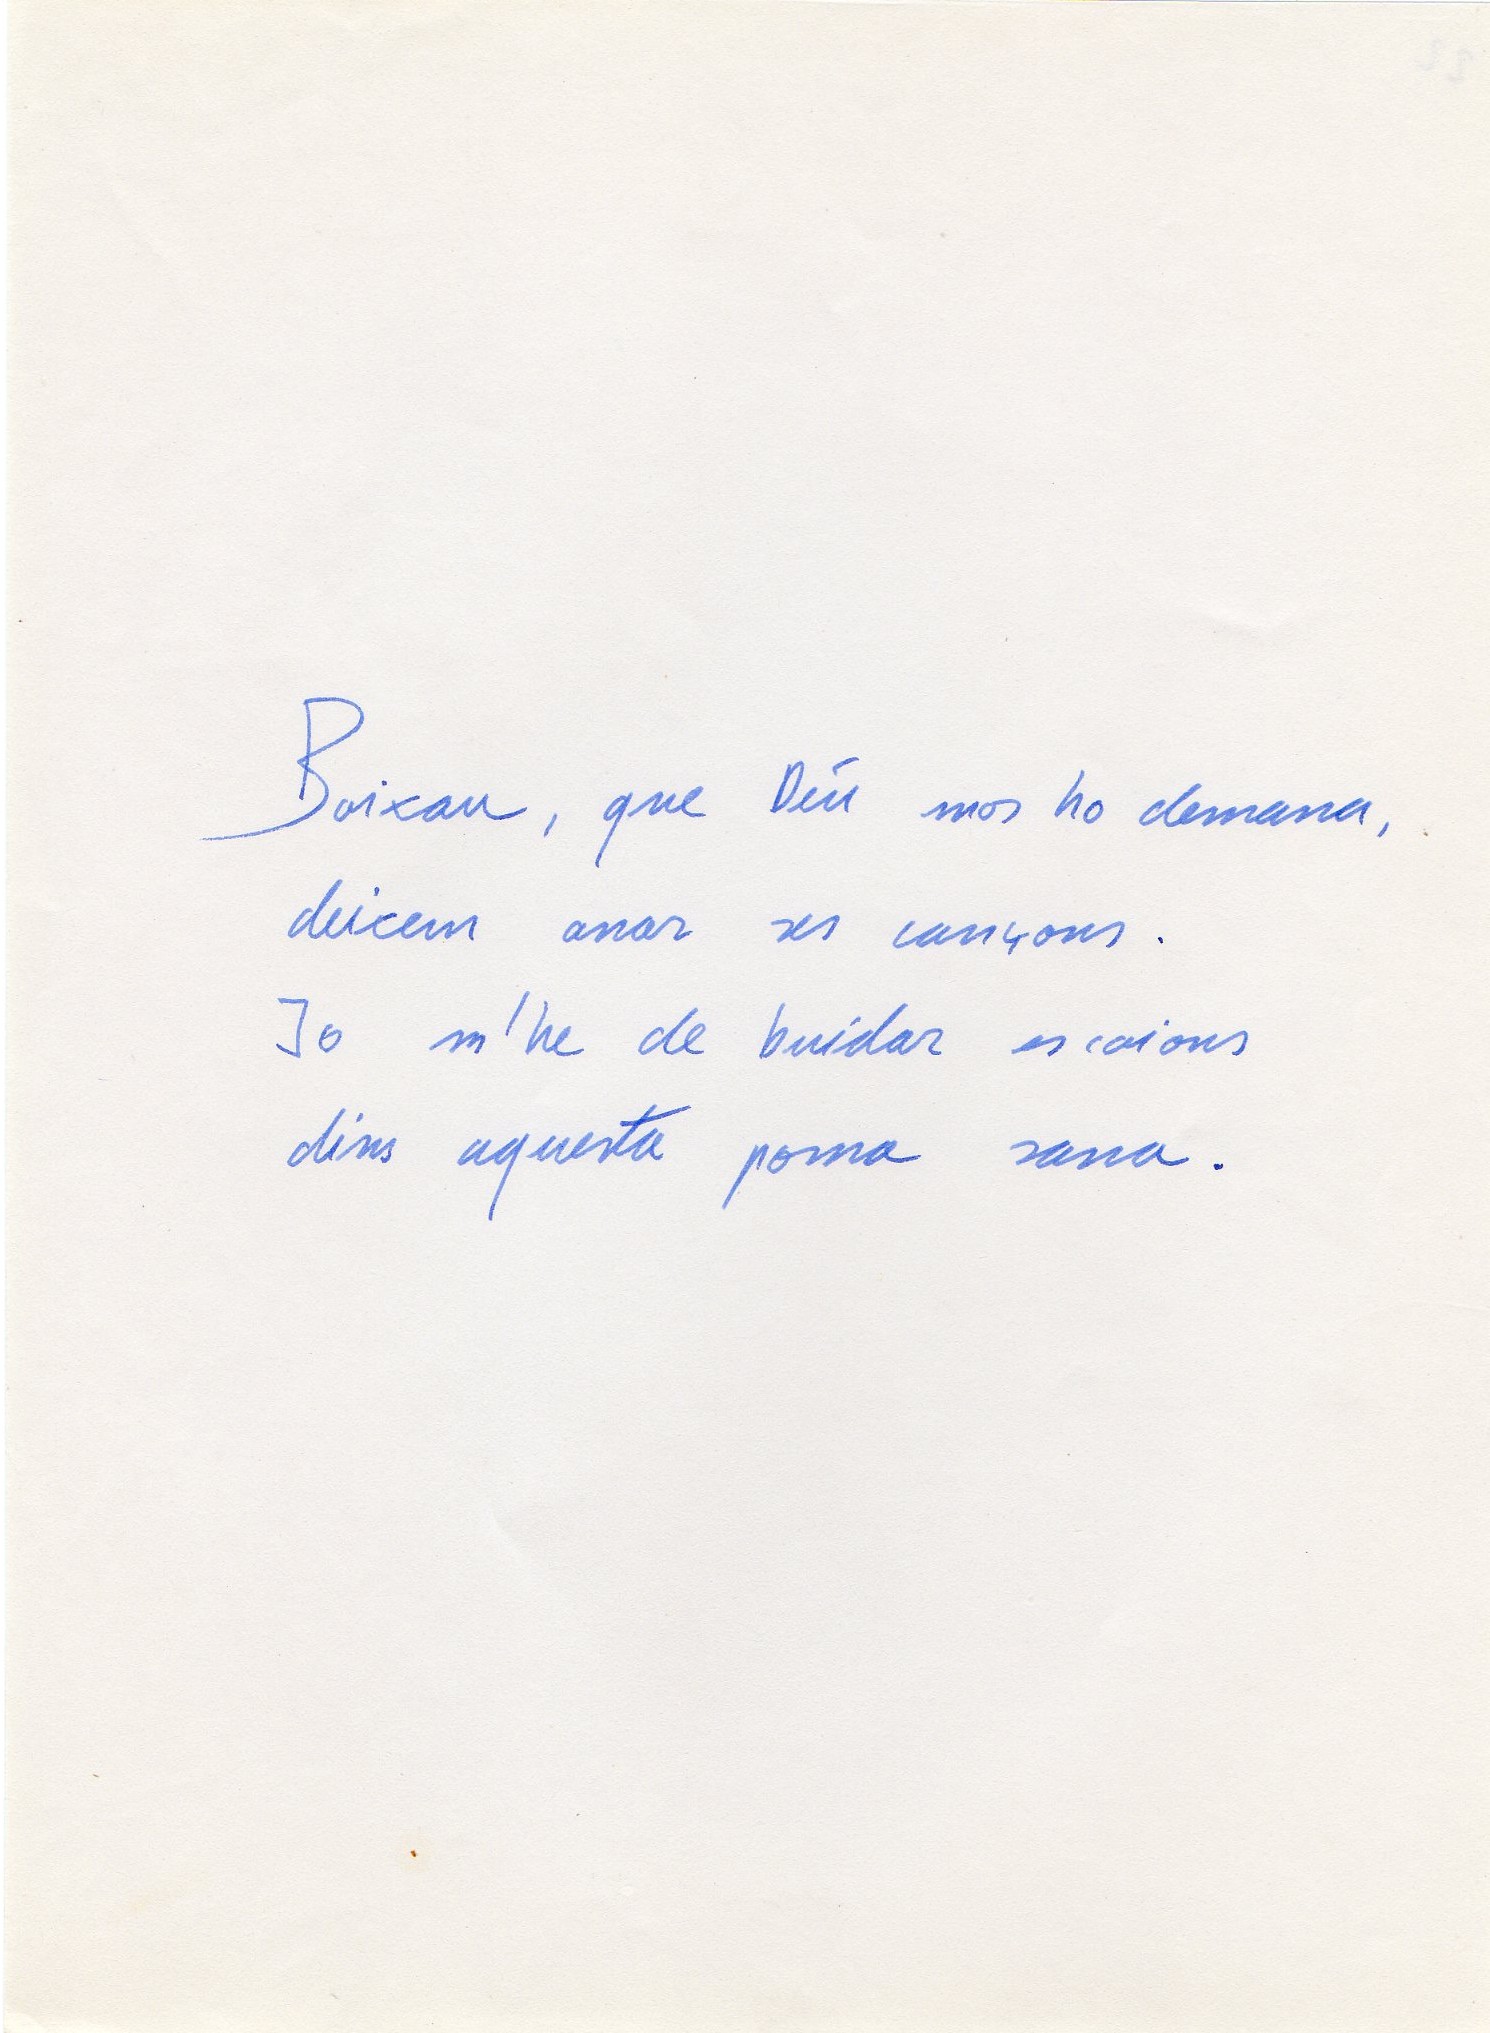 Baixau, que Déu mos ho demana,
deixem anar ses cançons.
Jo m'he de buidar es caions
dins aquesta poma sana.